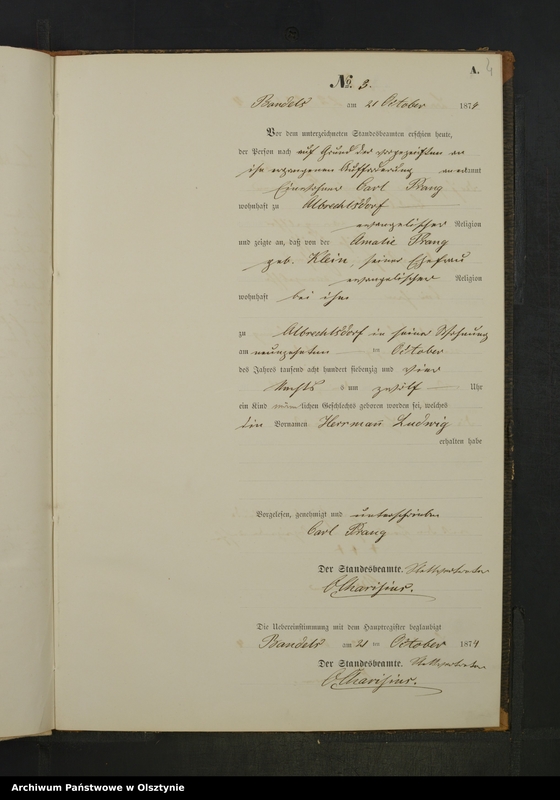 A. 4
No. 3.
Bandels am 21 October 1874
Vor dem unterzeichneten Standesbeamten erschien heute,
der Person nach auf Grund der vorgezeigten an
ihn ergangenen Aufforderung anerkannt
Einwohner Carl Prang
wohnhaft zu Albrechtsdorf
evangelischer Religion
und zeigte an, daß von der Amalie Prang
geb. Klein, seiner Ehefrau
evangelischer Religion
wohnhaft bei ihm
zu Albrechtsdorf in seiner Wohnung
am neunzehnten ten October
des Jahres tausend acht hundert siebenzig und vier
Nachts um zwölf Uhr
ein Kind männlichen Geschlechts geboren worden sei, welches
die Vornamen Herrmann Ludwig
erhalten habe
Vorgelesen, genehmigt und unterschrieben
Carl Prang
Der Standesbeamte. Stellvertreter
Charisius.
Die Uebereinstimmung mit dem Hauptregister beglaubigt
Bandels am 21 ten October 1874
Der Standesbeamte. Stellvertreter
Charisius.
Archiwum Państwowe w Olsztynie